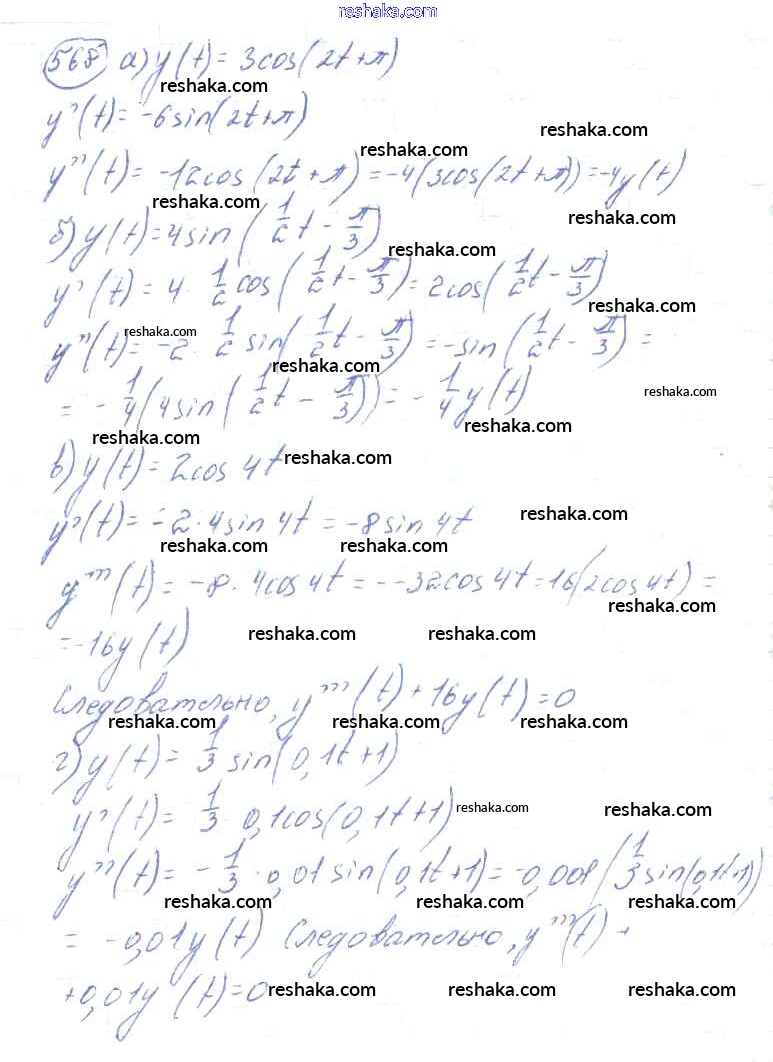 reshaka.com
568 а) y(t) = 3cos(2t+π)
reshaka.com
y'(t) = -6sin(2t+π)
reshaka.com
reshaka.com
y''(t) = -12cos(2t+π) = -4(3cos(2t+π)) = -4y(t)
reshaka.com
reshaka.com
б) y(t) = 4sin(1/2 t - π/3)
reshaka.com
y'(t) = 4 · 1/2 cos(1/2 t - π/3) = 2cos(1/2 t - π/3)
reshaka.com
reshaka.com
y''(t) = -2 · 1/2 sin(1/2 t - π/3) = -sin(1/2 t - π/3) =
reshaka.com
= -1/4(4sin(1/2 t - π/3)) = -1/4 y(t)
reshaka.com
reshaka.com
reshaka.com
в) y(t) = 2cos 4t
reshaka.com
y'(t) = -2·4sin 4t = -8sin 4t
reshaka.com
reshaka.com
reshaka.com
y'''(t) = -8·4cos 4t = --32cos 4t = 16(2cos 4t) =
reshaka.com
= -16y(t)
reshaka.com
reshaka.com
Следовательно, y'''(t) + 16y(t) = 0
reshaka.com
reshaka.com
reshaka.com
г) y(t) = 1/3 sin(0,1t+1)
y'(t) = 1/3 · 0,1cos(0,1t+1)
reshaka.com
reshaka.com
y''(t) = -1/3 · 0,01sin(0,1t+1) = -0,001(1/3 sin(0,1t+1))
reshaka.com
reshaka.com
reshaka.com
= -0,01y(t) Следовательно, y'''(t) +
+0,01y(t) = 0
reshaka.com
reshaka.com
reshaka.com